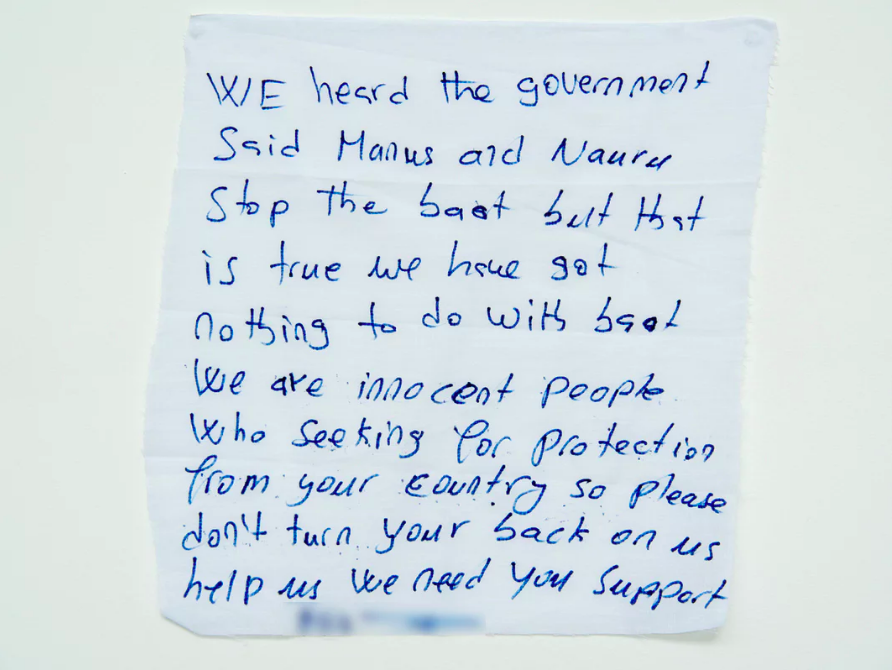 WE heard the government
Said Manus and Nauru
Stop the baot but that
is true we have got
nothing to do with baot
We are innocent people
Who seeking for protection
from your country so please
don't turn your back on us
help us we need you support